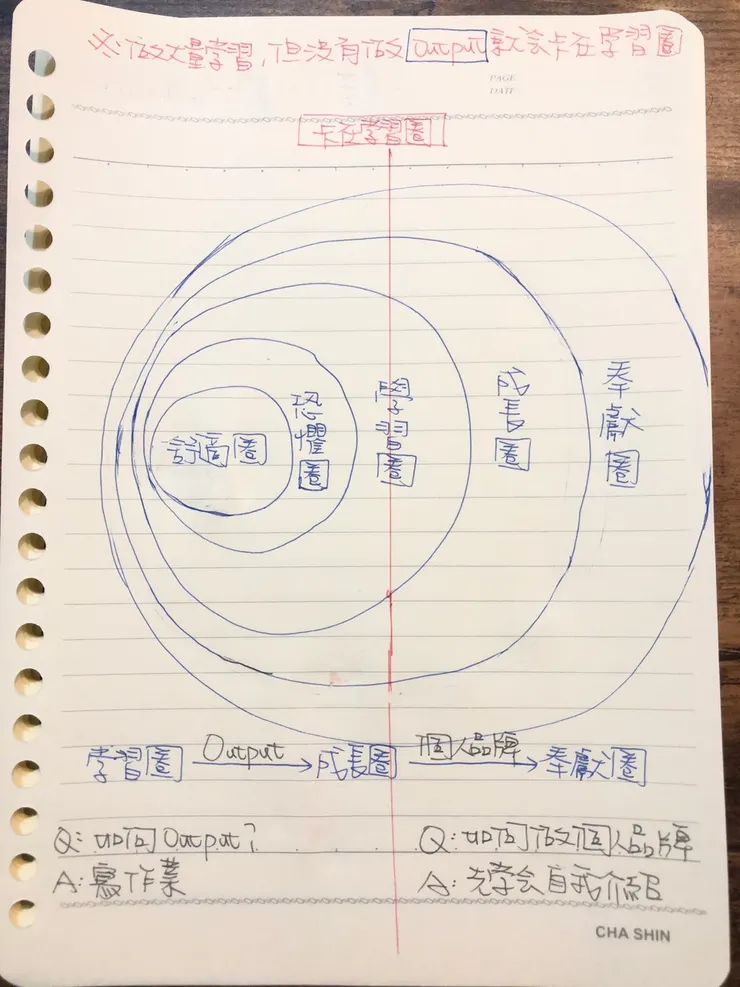 ※做大量學習,但没有做Output就会卡在学習圈
PAGE
DATE
卡在学習圈
舒適圈
恐懼圈
學習圈
成長圈
奉獻圈
学習圈 Output 成長圈 個人品牌 奉獻圈
Q:如何Output?
A:寫作業
Q:如何做個人品牌
A:先学会自我介紹
CHA SHIN